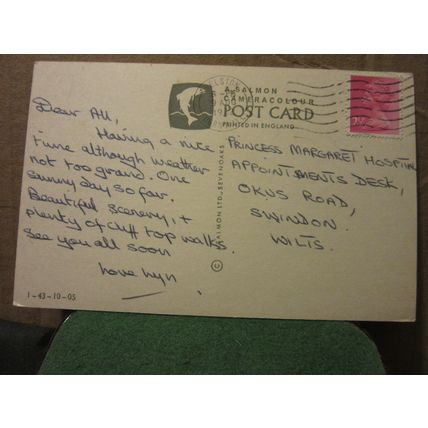 Dear All,
Having a nice
time although weather
not too grand. One
sunny day so far.
Beautiful scenery, +
plenty of cliff top walks.
See you all soon
Love Lyn
1-43-10-05
A SALMON
CAMERACOLOUR
POST CARD
PRINTED IN ENGLAND
SALMON LTD., SEVENOAKS
PRINCESS MARGARET HOSPITAL
APPOINTMENTS DESK,
OKUS ROAD,
SWINDON.
WILTS.